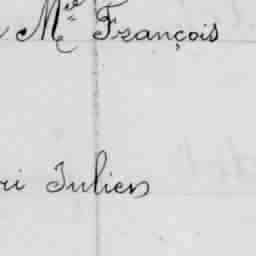 Mlle François
ri Julien